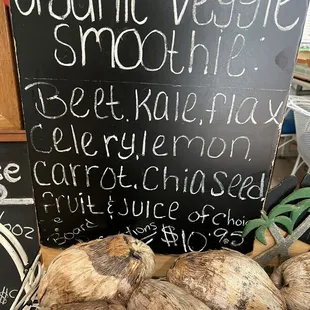 organic Veggie
Smoothie:
Beet, Kale, flax
Celery, lemon,
Carrot, Chia seed,
fruit & Juice of choi
Board
= $10.95